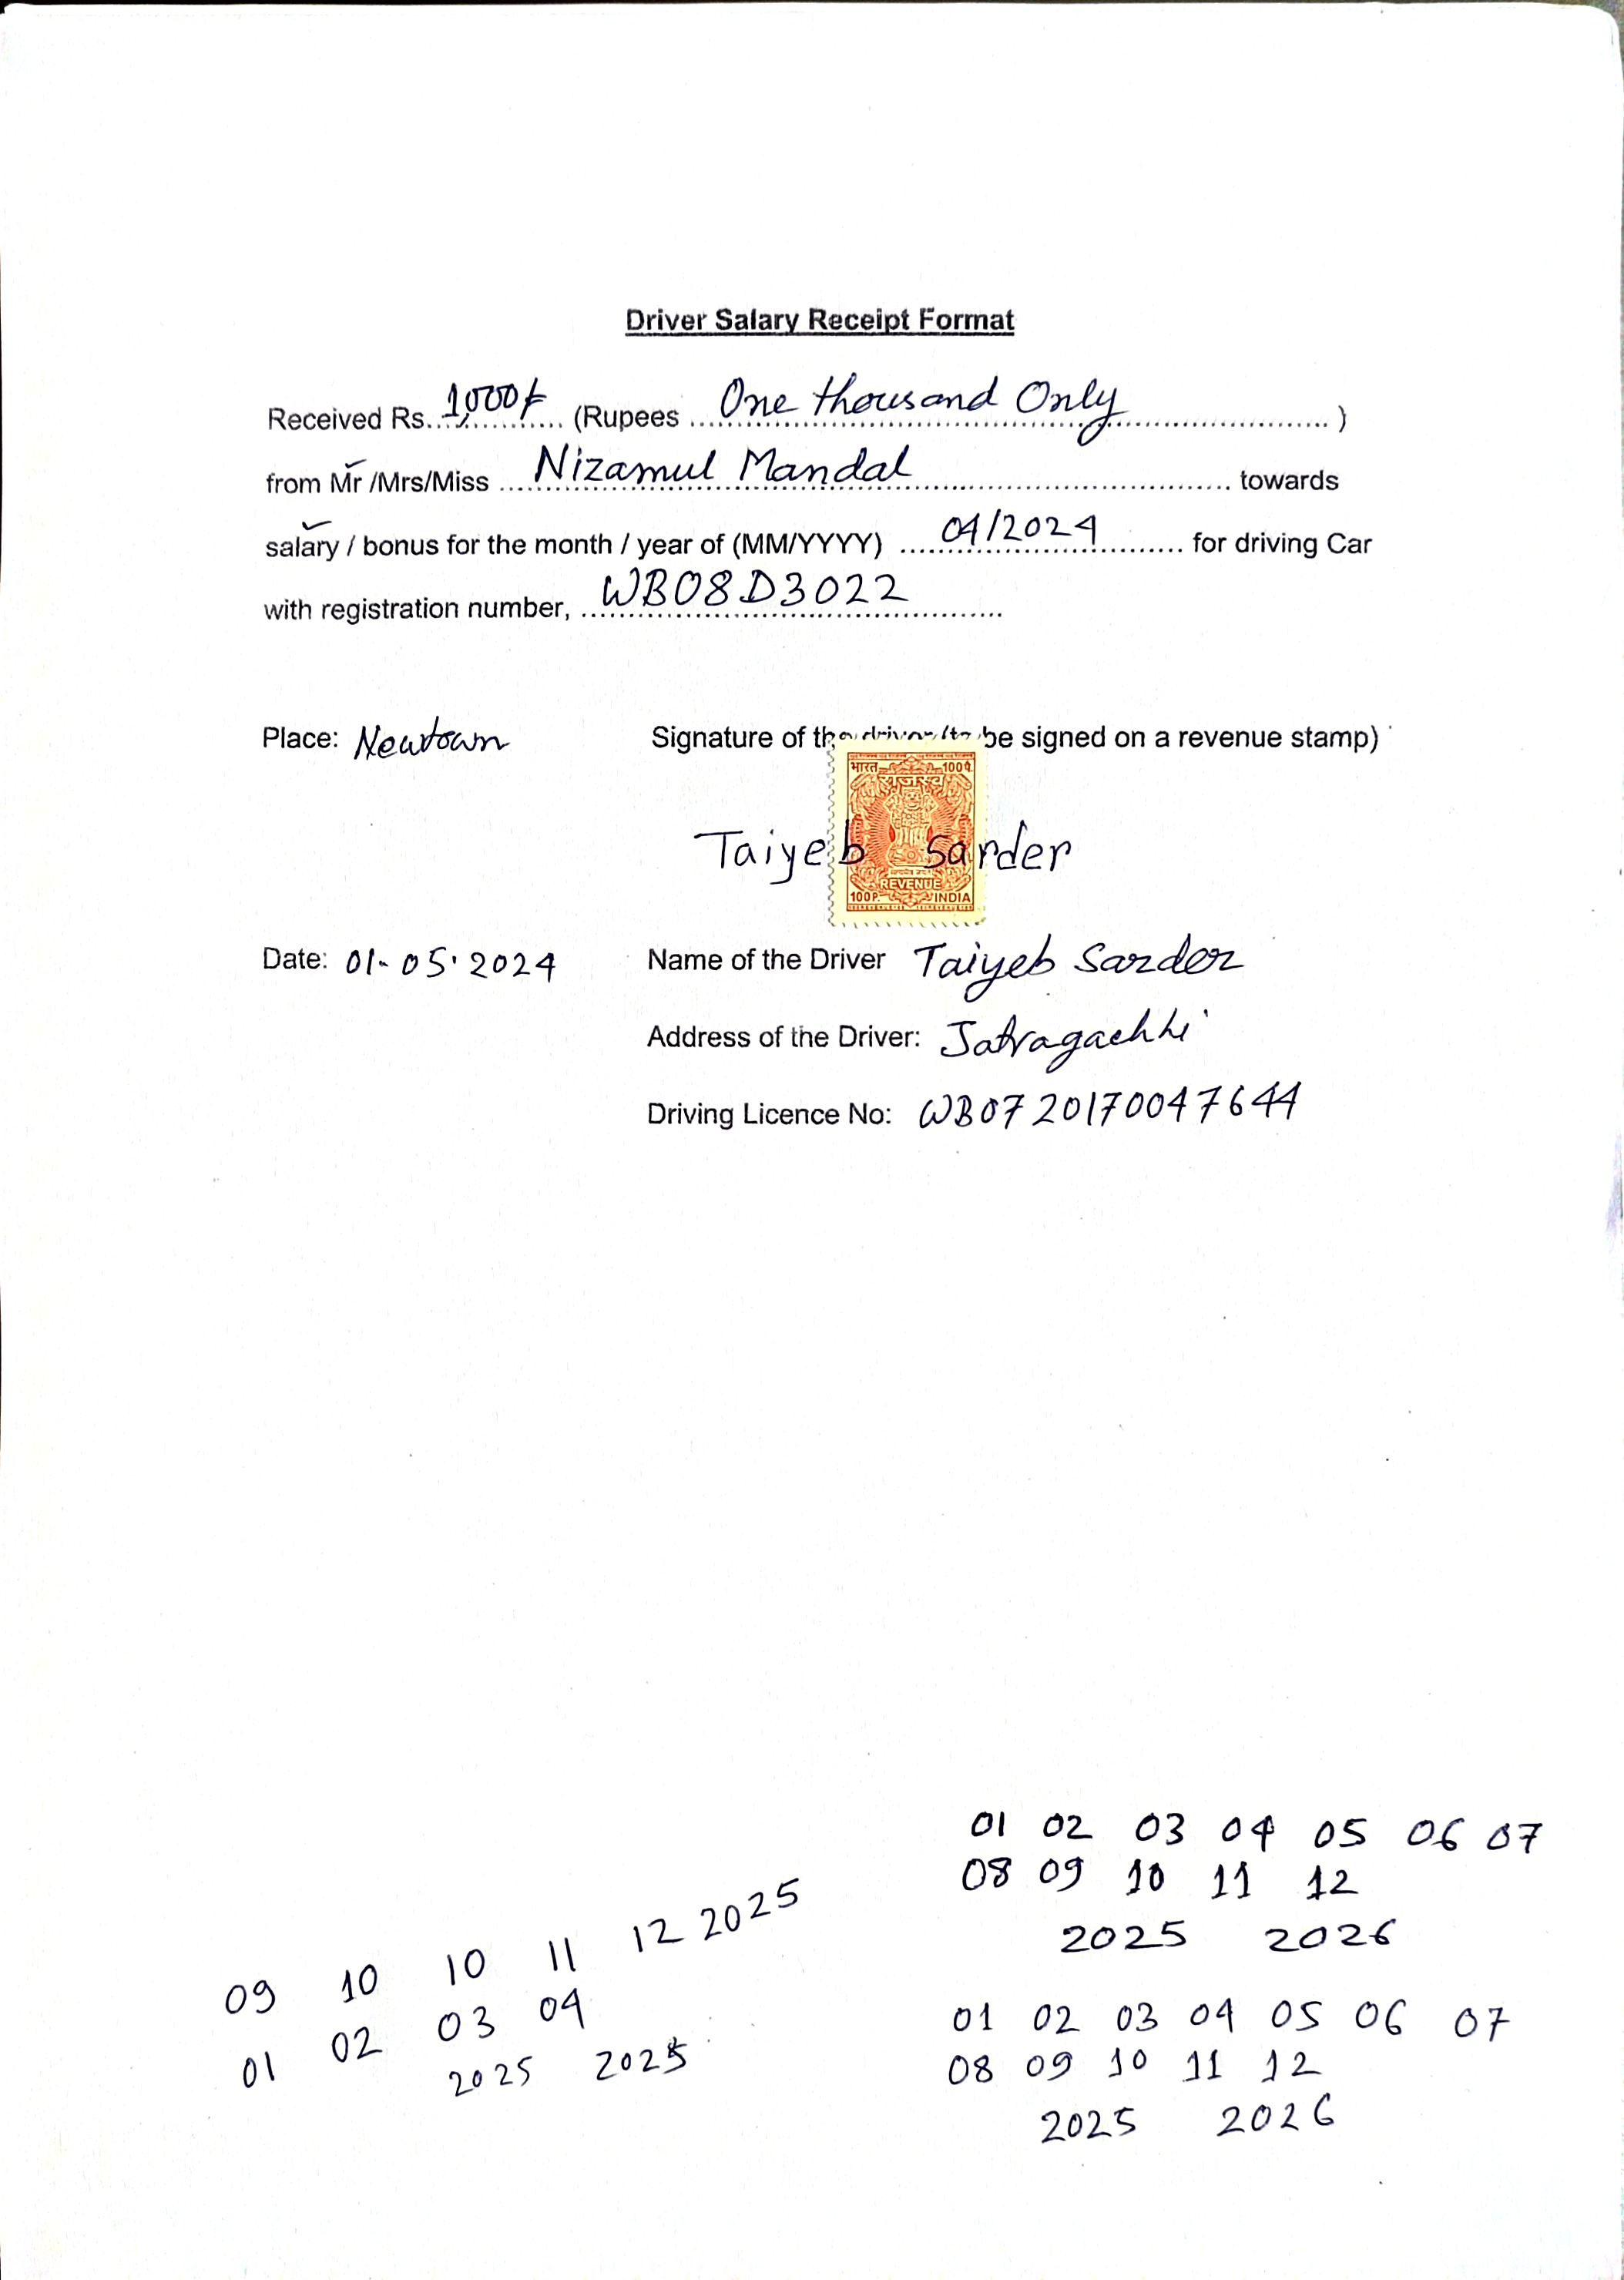 Driver Salary Receipt Format
Received Rs. 1,000/- (Rupees One thousand Only )
from Mr /Mrs/Miss Nizamul Mandal towards
salary / bonus for the month / year of (MM/YYYY) 04/2024 for driving Car
with registration number, WB08D3022
Place: Newtown Signature of the driver (to be signed on a revenue stamp)
भारत 100 प.
राजस्व
Taiyeb Sarder
REVENUE
100 P. INDIA
Date: 01-05.2024 Name of the Driver Taiyeb Sarder
Address of the Driver: Jatragachhi
Driving Licence No: WB0720170047644
01 02 03 04 05 06 07
08 09 10 11 12
2025 2026
09 10 10 11 12 2025
01 02 03 04
2025 2025
01 02 03 04 05 06 07
08 09 10 11 12
2025 2026